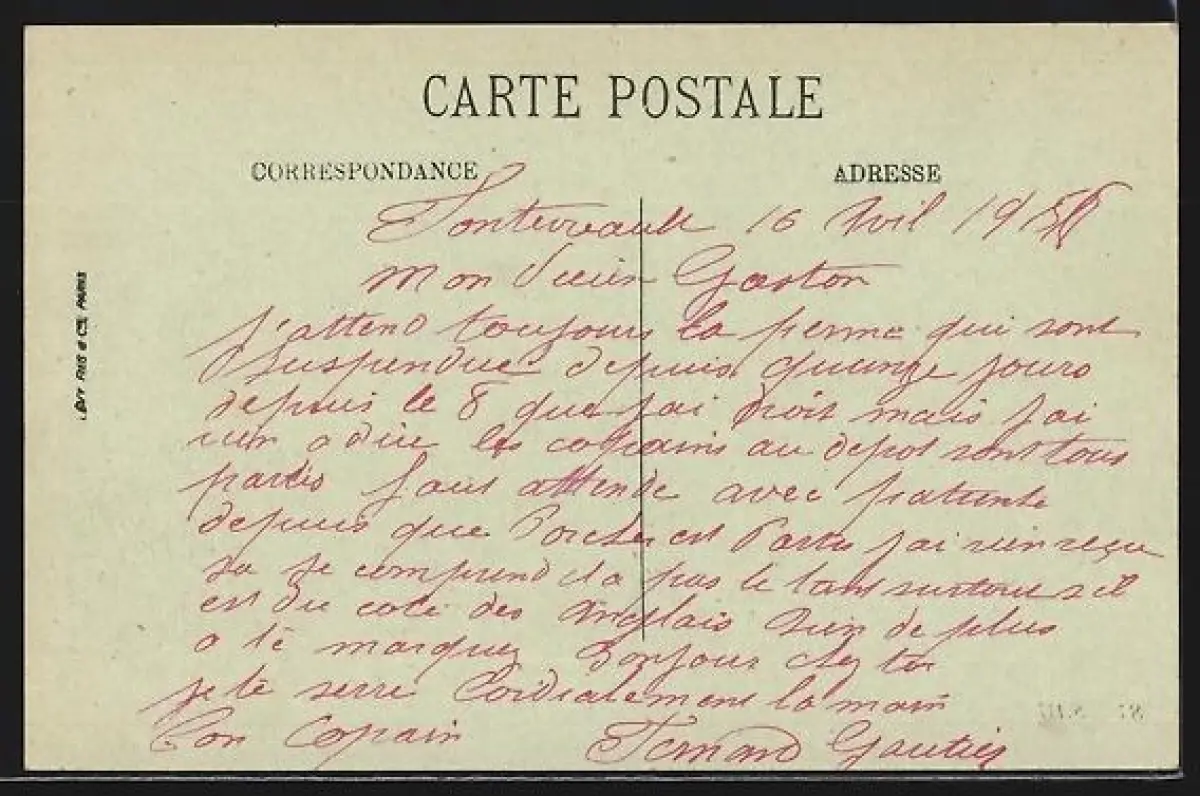 CARTE POSTALE
CORRESPONDANCE
ADRESSE
LEVY FILS & Cie, PARIS
Fontevreault 16 Avril 191
Mon Vieux Gaston
j'attend toujours la perme qui sont
suspendue depuis quinze jours
depuis le 8 que j'ai droit mais j'ai
rien a dire les copains au depot sont tous
partis faut attendre avec patiente
depuis que Porcher est Partis j'ai rien reçu
sa se comprend il a pas le tant surtout s'il
est du coté des Anglais Rien de plus
a te marquez Bonjour chez toi
je te serre Cordialement la main
Ton Copain Fernand Gautier